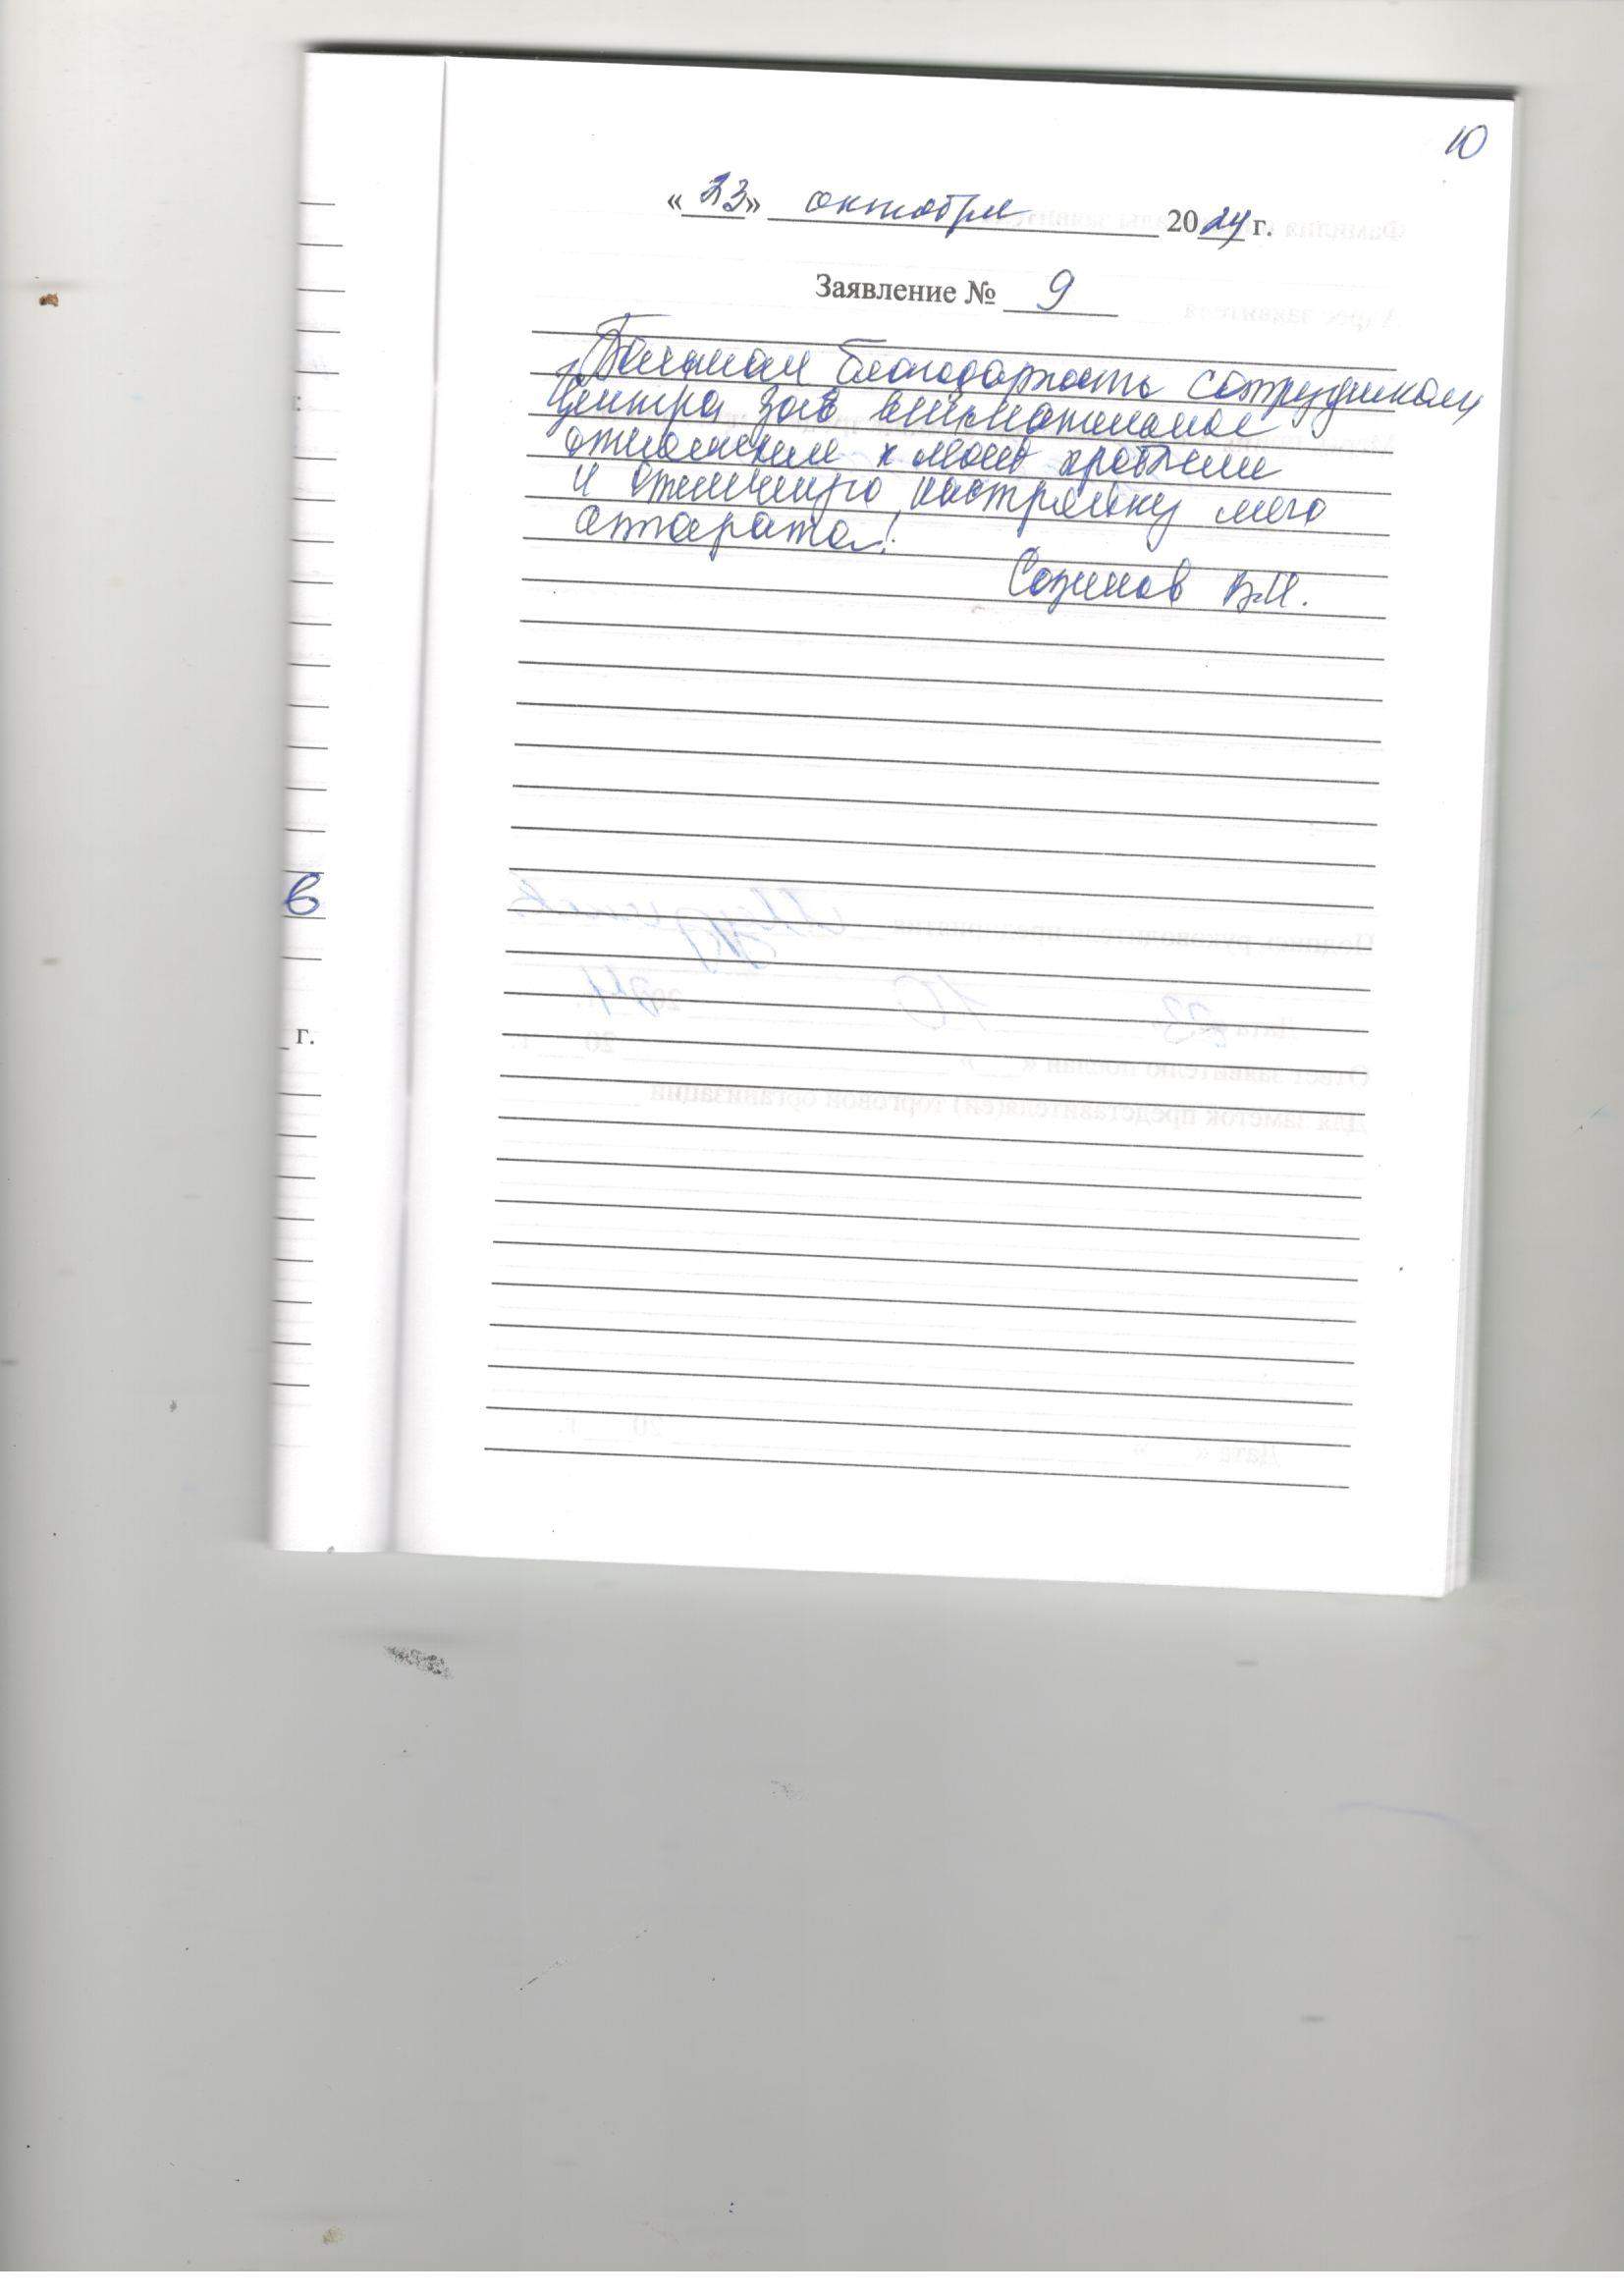 10
«23» октября 2024 г.
Заявление № 9
Большая благодарность сотрудникам
центра за внимательное
отношение к моей проблеме
и отличную настройку моего
аппарата!
Созинов В.И.
в
г.